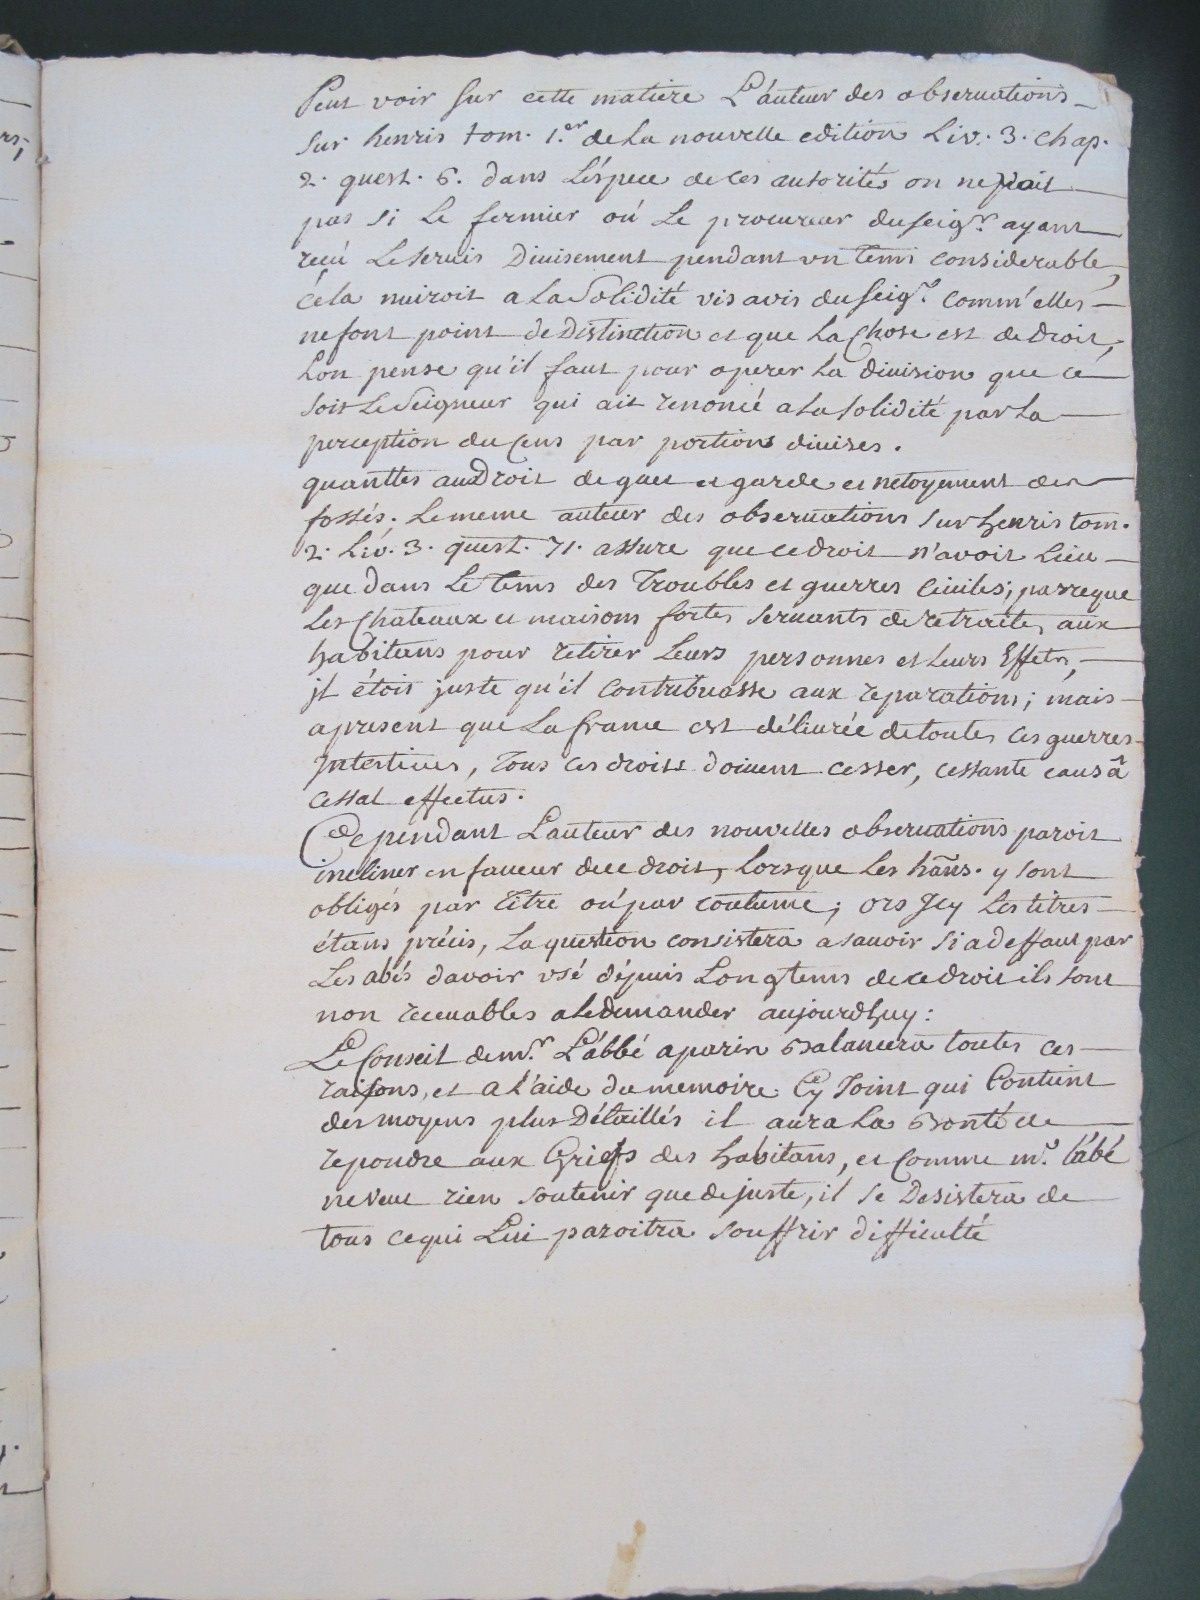 Peut voir sur cette matiere L'auteur des observations
sur henris tom. 1.er de La nouvelle edition Liv. 3. chap.
2. quest. 6. dans L'éspece de ces autorités on ne voit
pas si Le fermier oú Le procureur du seigr. ayant
recú Le servis Divisement pendant un tems considerable,
céla nuiroit a La Solidité vis avis du seigr. comm'elles
ne font point de Distinction et que La Chose est de droit,
Lon pense qu'il faut pour operer La division que ce
soit Le Seigneur qui ait renoncé a La solidité par La
perception du Cens par portions divises.
quant tes aux Droit de guet et garde et netoyement des
fossés. Le meme auteur des observations sur henris tom.
2. Liv. 3. quest. 71. assure que ce droit n'avoit Lieu
que dans Le tems des Troubles et guerres Civiles; parceque
Les Chateaux et maisons fortes servants de retraite, aux
habitans pour retirer Leurs personnes et Leurs Effets,
jl étoit juste qu'il Contribuasse aux reparations; mais
apresent que La france est délivrée de toutes ces guerres
Intestines, Tous ces droits doivent cesser, cessante causâ
cessat effectus.
Cependant L'auteur des nouvelles observations paroit
incliner en faveur de ce droit, Lorsque Les hãns. y sont
obligés par titre oú par coutume; ors Jcy Les titres
étans précis, La question consistera a savoir si a deffaut par
Les abés davoir vsé dépuis Longtems de ce droit ils sont
non recevables a Le demander aujourdhuy:
Le Conseil de mr. L'abbé aparin Balancera toutes ces
raisons, et a L'aide du memoire Cy Joint qui Contient
des moyens plus Détaillés il aura La Bonté de
repondre aux Griefs des habitans, et Comme mr. l'abé
ne veut rien soutenir que de juste, il se Desistera de
tous ce qui Lui paroitra souffrir difficulté